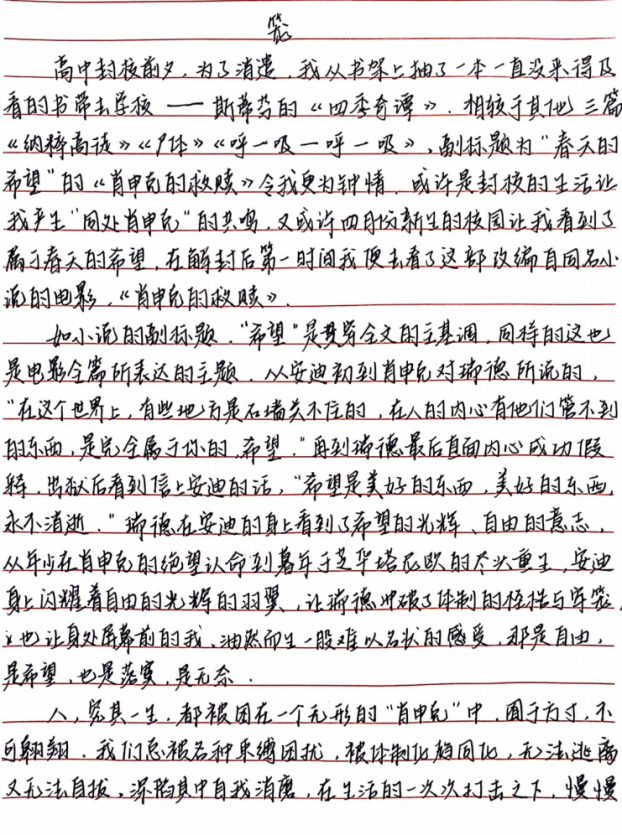 笼
高中封校前夕,为了消遣,我从书架上抽了一本一直没来得及
看的书带去学校——斯蒂芬的《四季奇谭》。相较于其他三篇
《纳粹高徒》《尸体》《呼—吸—呼—吸》,副标题为“春天的
希望”的《肖申克的救赎》令我更为钟情。或许是封校的生活让
我产生“同处肖申克”的共鸣,又或许四月份新生的校园让我看到了
属于春天的希望,在解封后第一时间我便去看了这部改编自同名小
说的电影,《肖申克的救赎》。
如小说的副标题,“希望”是贯穿全文的主基调,同样的这也
是电影全篇所表达的主题。从安迪初到肖申克对瑞德所说的,
“在这个世界上,有些地方是石墙关不住的,在人的内心有他们管不到
的东西,是完全属于你的,希望。”再到瑞德最后直面内心成功假
释,出狱后看到信上安迪的话,“希望是美好的东西,美好的东西,
永不消逝。”瑞德在安迪的身上看到了希望的光辉、自由的意志,
从年少在肖申克的绝望认命到暮年于芝华塔尼欧的尽兴重生,安迪
身上闪耀着自由的光辉的羽翼,让瑞德冲破了体制的桎梏与牢笼,
这也让身处屏幕前的我,油然而生一股难以名状的感受,那是自由,
是希望,也是落寞,是无奈。
人,究其一生,都被困在一个无形的“肖申克”中,囿于方寸,不
可翱翔。我们总被各种束缚困扰,被体制化趋同化,无法逃离
又无法自拔,深陷其中自我消磨,在生活的一次次打击之下,慢慢